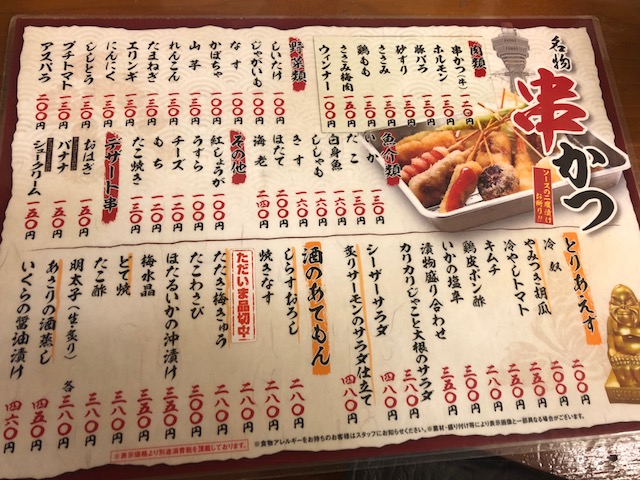 名物
串かつ
ソースの二度漬け
お断り!!
肉類
串かつ(牛) 一二〇円
ホルモン
豚バラ
砂ずり
ささみ
鶏もも
ささみ梅肉
ウィンナー 一〇〇円
野菜類
しいたけ 一〇〇円
じゃがいも 一〇〇円
なす 一〇〇円
かぼちゃ 一〇〇円
山芋 一〇〇円
れんこん 一三〇円
たまねぎ 一三〇円
エリンギ 一三〇円
にんにく 一三〇円
ししとう 一三〇円
プチトマト 一三〇円
アスパラ 二〇〇円
魚介類
いか 一三〇円
たこ 一三〇円
白身魚 一六〇円
ししゃも 一六〇円
きす 一六〇円
ほたて 二〇〇円
海老 二四〇円
その他
紅しょうが 一〇〇円
うずら 一〇〇円
チーズ 二〇〇円
もち 一三〇円
たこ焼き 一三〇円
デザート串
おはぎ 一五〇円
バナナ 一五〇円
シュークリーム 一五〇円
とりあえず
冷奴 二〇〇円
やみつき胡瓜 二〇〇円
冷やしトマト 二八〇円
キムチ 二八〇円
鶏皮ポン酢 二八〇円
いかの塩辛 二八〇円
漬物盛り合わせ 三〇〇円
カリカリじゃこと大根のサラダ 三八〇円
シーザーサラダ 三五〇円
炙りサーモンのサラダ仕立て 四八〇円
酒のあてもん
しらすおろし 二八〇円
焼きなす 二八〇円
ただいま品切中
たたき梅きゅう 二八〇円
たこわさび 三〇〇円
ほたるいかの沖漬け 三五〇円
梅水晶 三五〇円
どて焼 三八〇円
たこ酢 三八〇円
明太子(生・炙り) 各三八〇円
あさりの酒蒸し 四五〇円
いくらの醤油漬け 四六〇円
※食物アレルギーをお持ちのお客様はスタッフにお知らせください。※素材・盛り付け等により表示画像と一部異なる場合がございます。
※表示価格より別途消費税を頂戴しております。